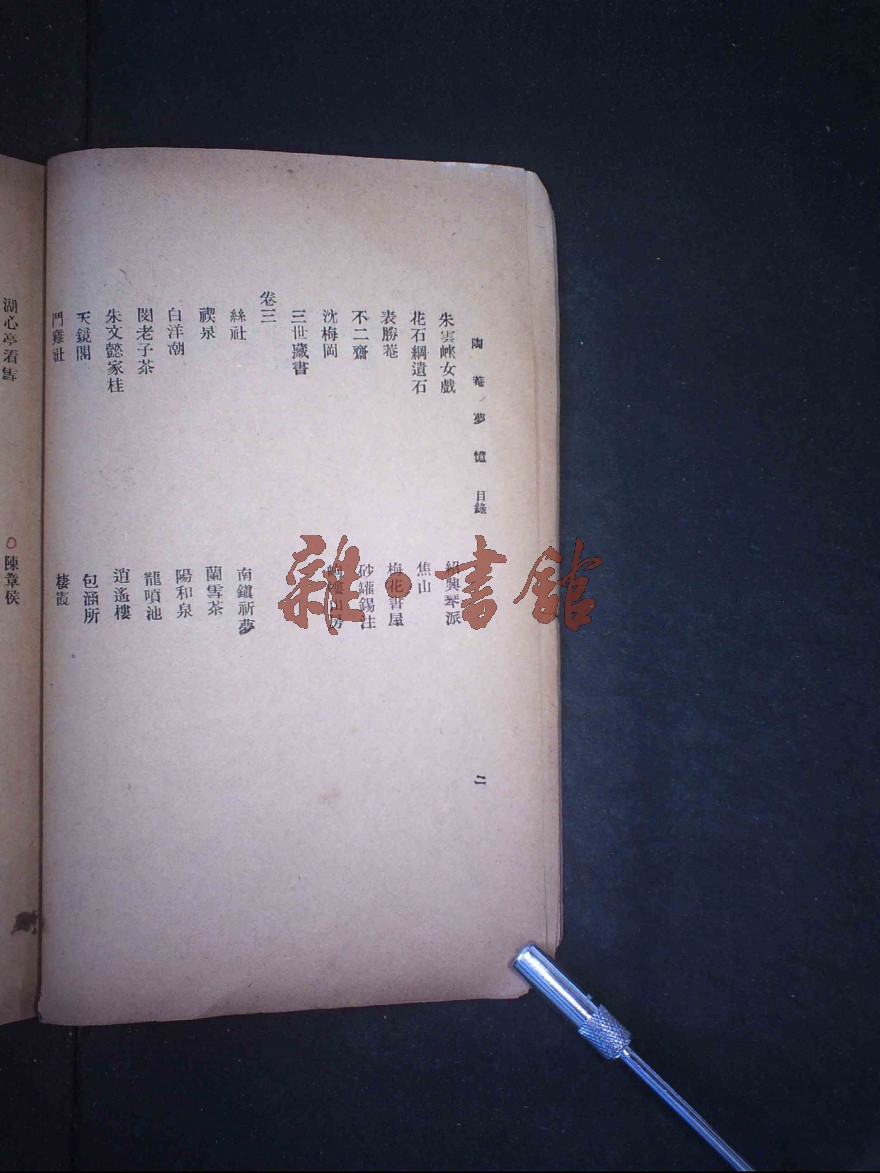 陶菴夢憶 目錄
二
朱雲崍女戲
紹興琴派
花石綱遺石
焦山
表勝菴
梅花書屋
不二齋
砂罐錫注
沈梅岡
岣嶁山房
三世藏書
卷三
絲社
南鎮祈夢
禊泉
蘭雪茶
白洋潮
陽和泉
閔老子茶
龍噴池
朱文懿家桂
逍遙樓
天鏡閣
包涵所
鬥雞社
棲霞
湖心亭看雪
陳章侯
雜·書館